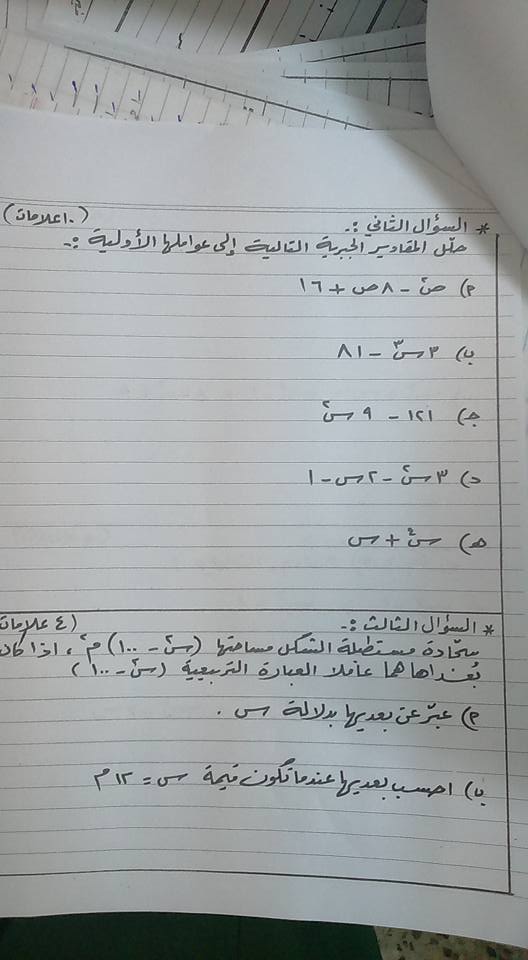 * السؤال الثاني :- (١٠ علامات)
حلّل المقادير الجبرية التالية إلى عواملها الأولية :-
أ) ص² - ٨ص + ١٦
ب) ٣س³ - ٨١
ج) ١٢١ - ٩س²
د) ٣س² - ٢س - ١
هـ) س⁴ + س
* السؤال الثالث :- (٤ علامات
سجّادة مستطيلة الشكل مساحتها (س² - ١٠٠) م² ، اذا كان
بُعداها هما عاملا العبارة التربيعية (س² - ١٠٠)
أ) عبّر عن بعديها بدلالة س .
ب) احسب بعديها عندما تكون قيمة س = ١٢ م